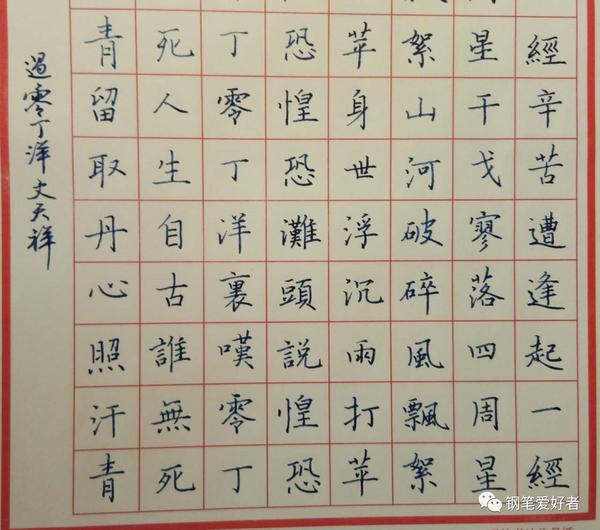 經辛苦遭逢起一經
星干戈寥落四周星
絮山河破碎風飄絮
苹身世浮沉雨打苹
恐惶恐灘頭説惶恐
丁零丁洋裏嘆零丁
死人生自古誰無死
青留取丹心照汗青
過零丁洋文天祥
钢笔爱好者